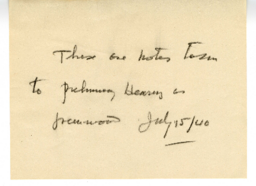 These are notes taken
to preliminary Hearing in
Greenwood July 15/40